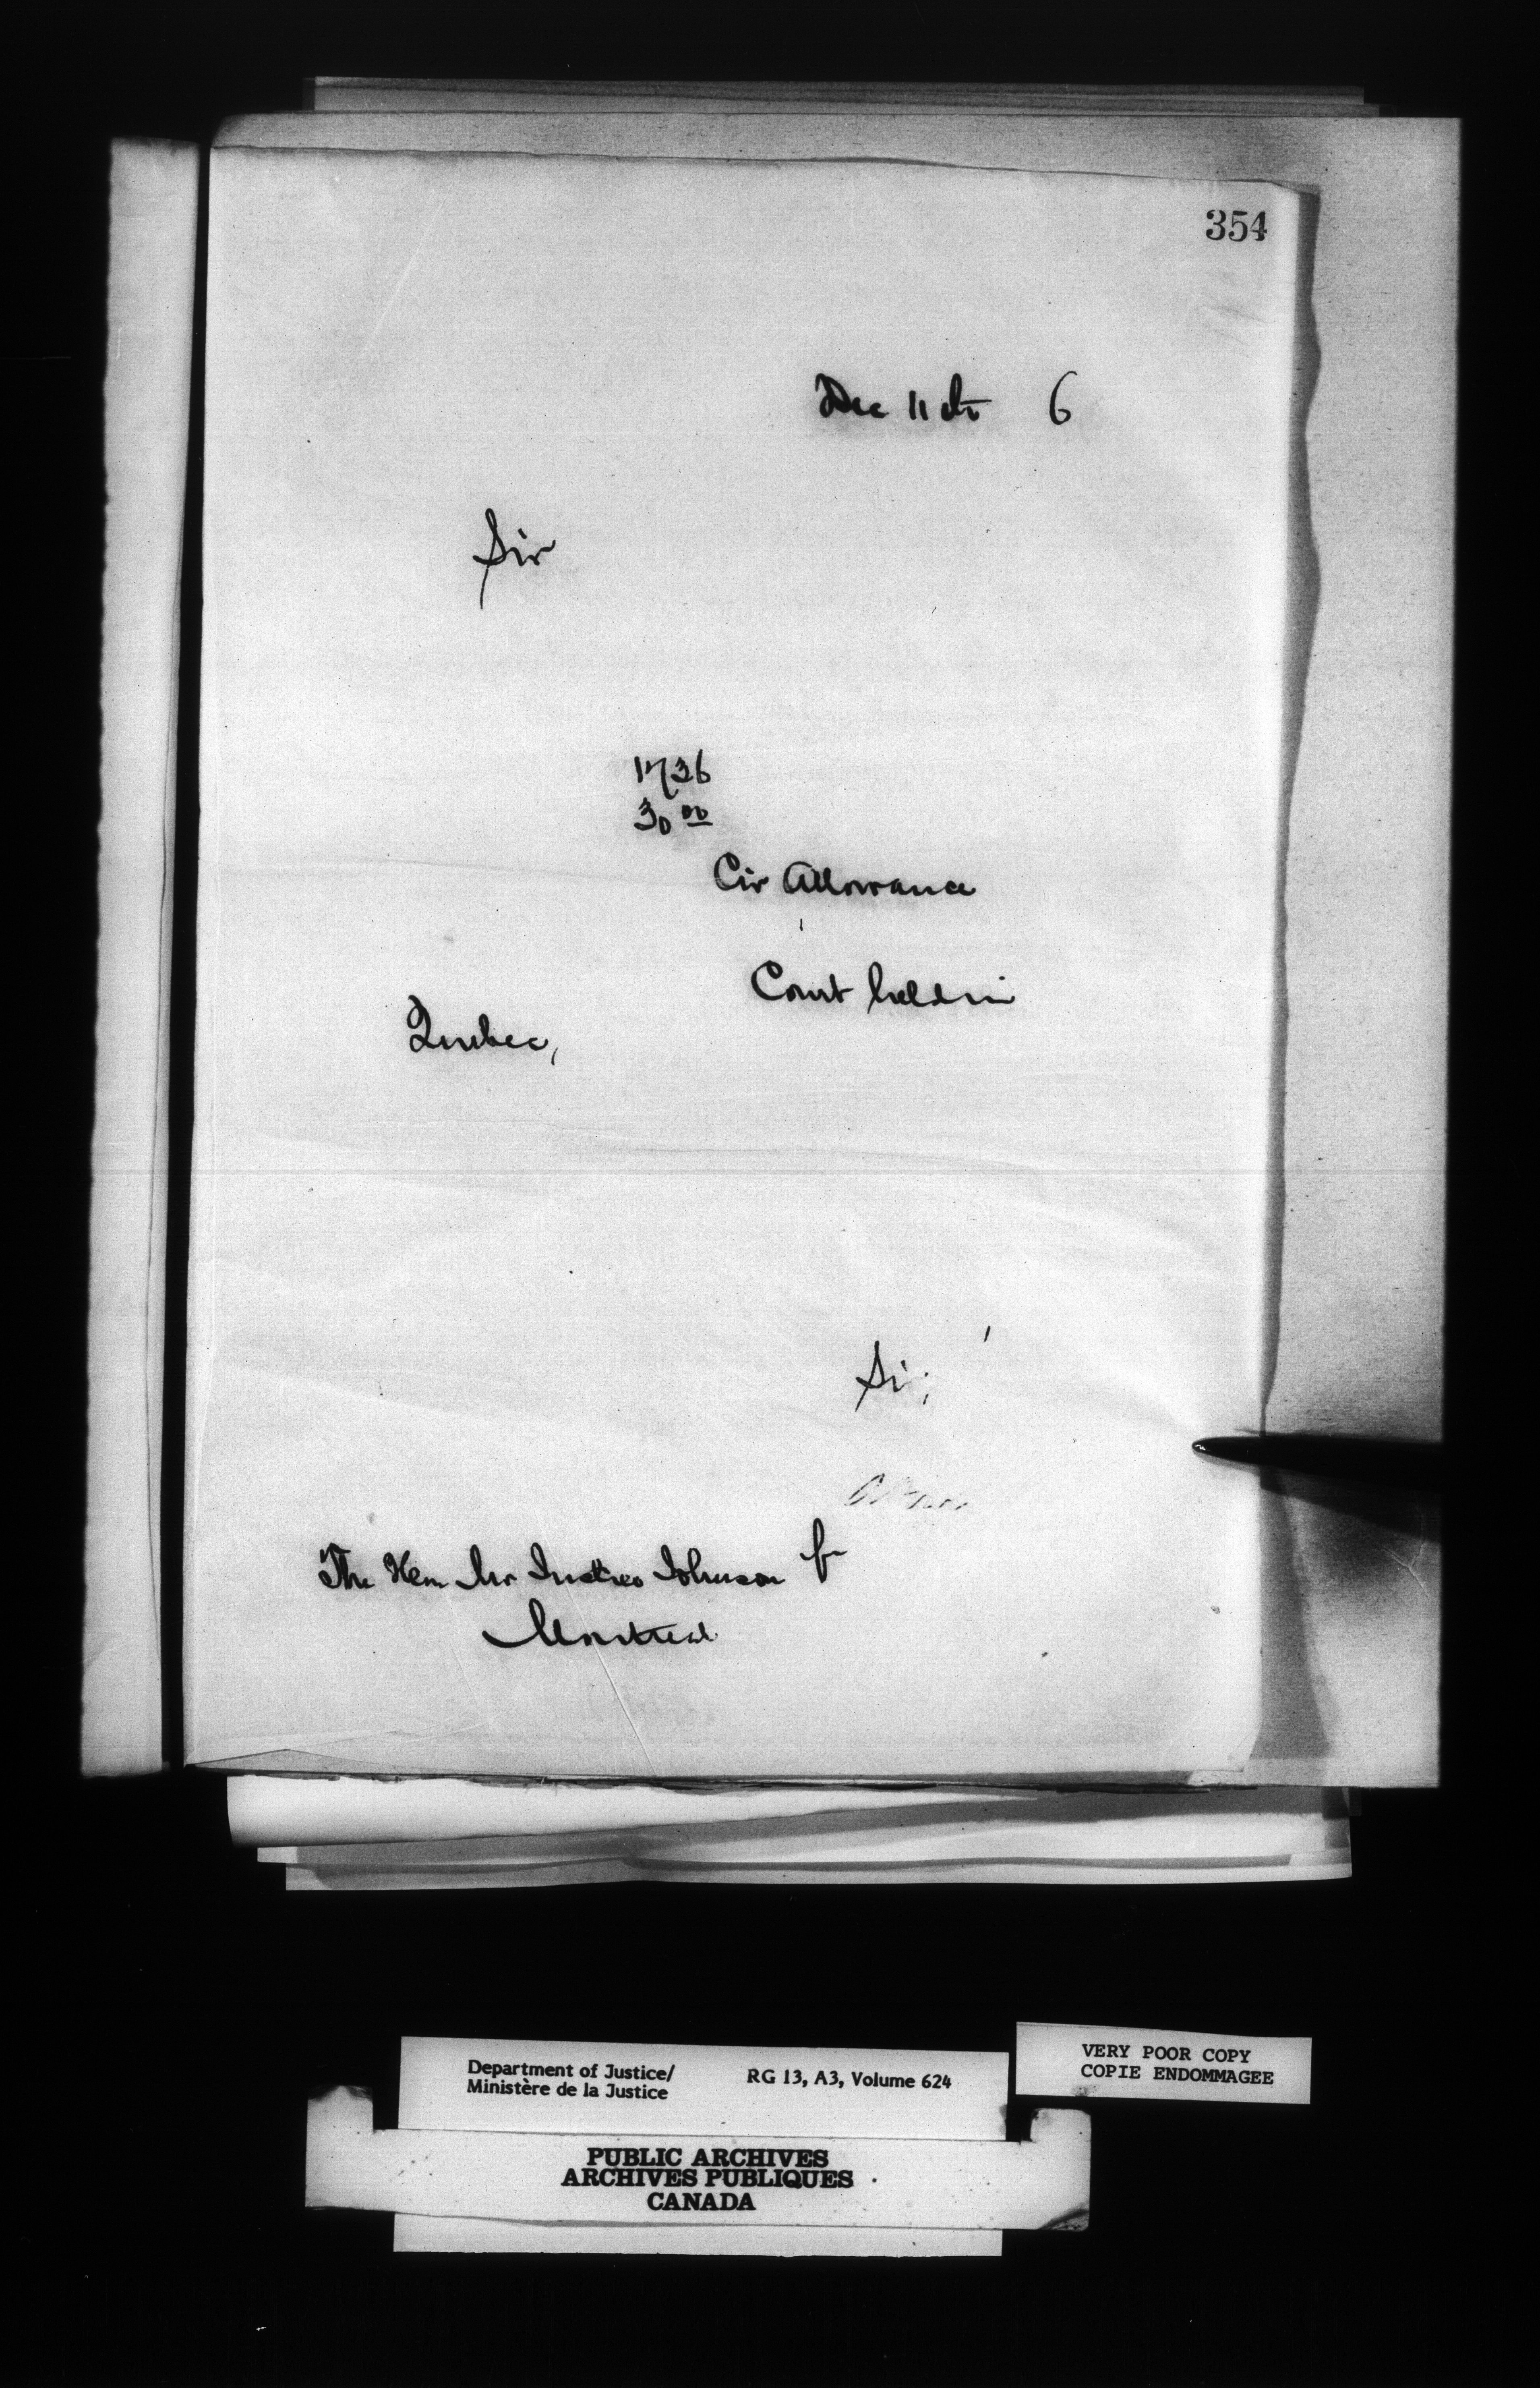 354
Dec 11th 6
Sir
1736
30 00
Cir Allowance
Court held in
Quebec,
Sir
The Hon Mr Justice Johnson
Montreal
Department of Justice/
Ministère de la Justice
RG 13, A3, Volume 624
VERY POOR COPY
COPIE ENDOMMAGEE
PUBLIC ARCHIVES
ARCHIVES PUBLIQUES
CANADA